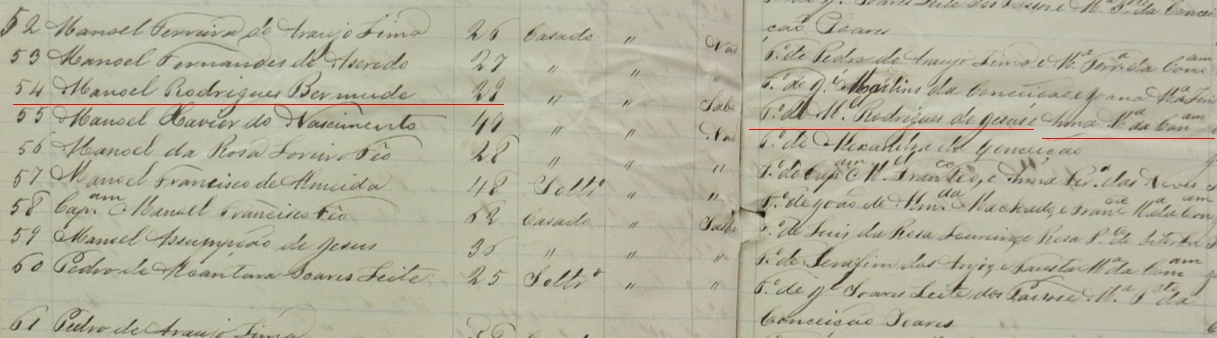 52 Manoel Ferreira de Araujo Lima 26 Casado " Não
ção Soares
53 Manoel Fernandes de Azeredo 27 " "
Fº. de Pedro de Araujo Lima e Mª. Ferrª. da Concam
54 Manoel Rodrigues Bermude 29 " " Sabe
Fº. de Martins da Conceição e Joana Mª. da
55 Manoel Xavier do Nascimento 47 " " Não
Fº. de Ml. Rodrigues de Jesus e Anna Mª. da Concam
56 Manoel da Rosa Loreiro Fº 28 " " "
Fº. de Alexandra da Conceição
57 Manoel Francisco de Almeida 48 Soltº " "
Fº. do Capam Ml. Francº. Fº. e Anna Ferª. das Neves
58 Capam. Manoel Francisco Fº 62 Casado " Sabe
Fº. de João de Machado e Francª. Mª. da Concam
59 Manoel Assumpção de Jesus 36 " " "
Fº. de Luis da Rosa Loureiro e Rosa
60 Pedro de Alcantara Soares Leite 25 Soltº " "
Fº. de Serafim dos Anjos e Fausta Mª. da Concam
Fº. de Je. Soares Leite dos Passos e Mª. da
61 Pedro de Araujo Lima
Conceição Soares